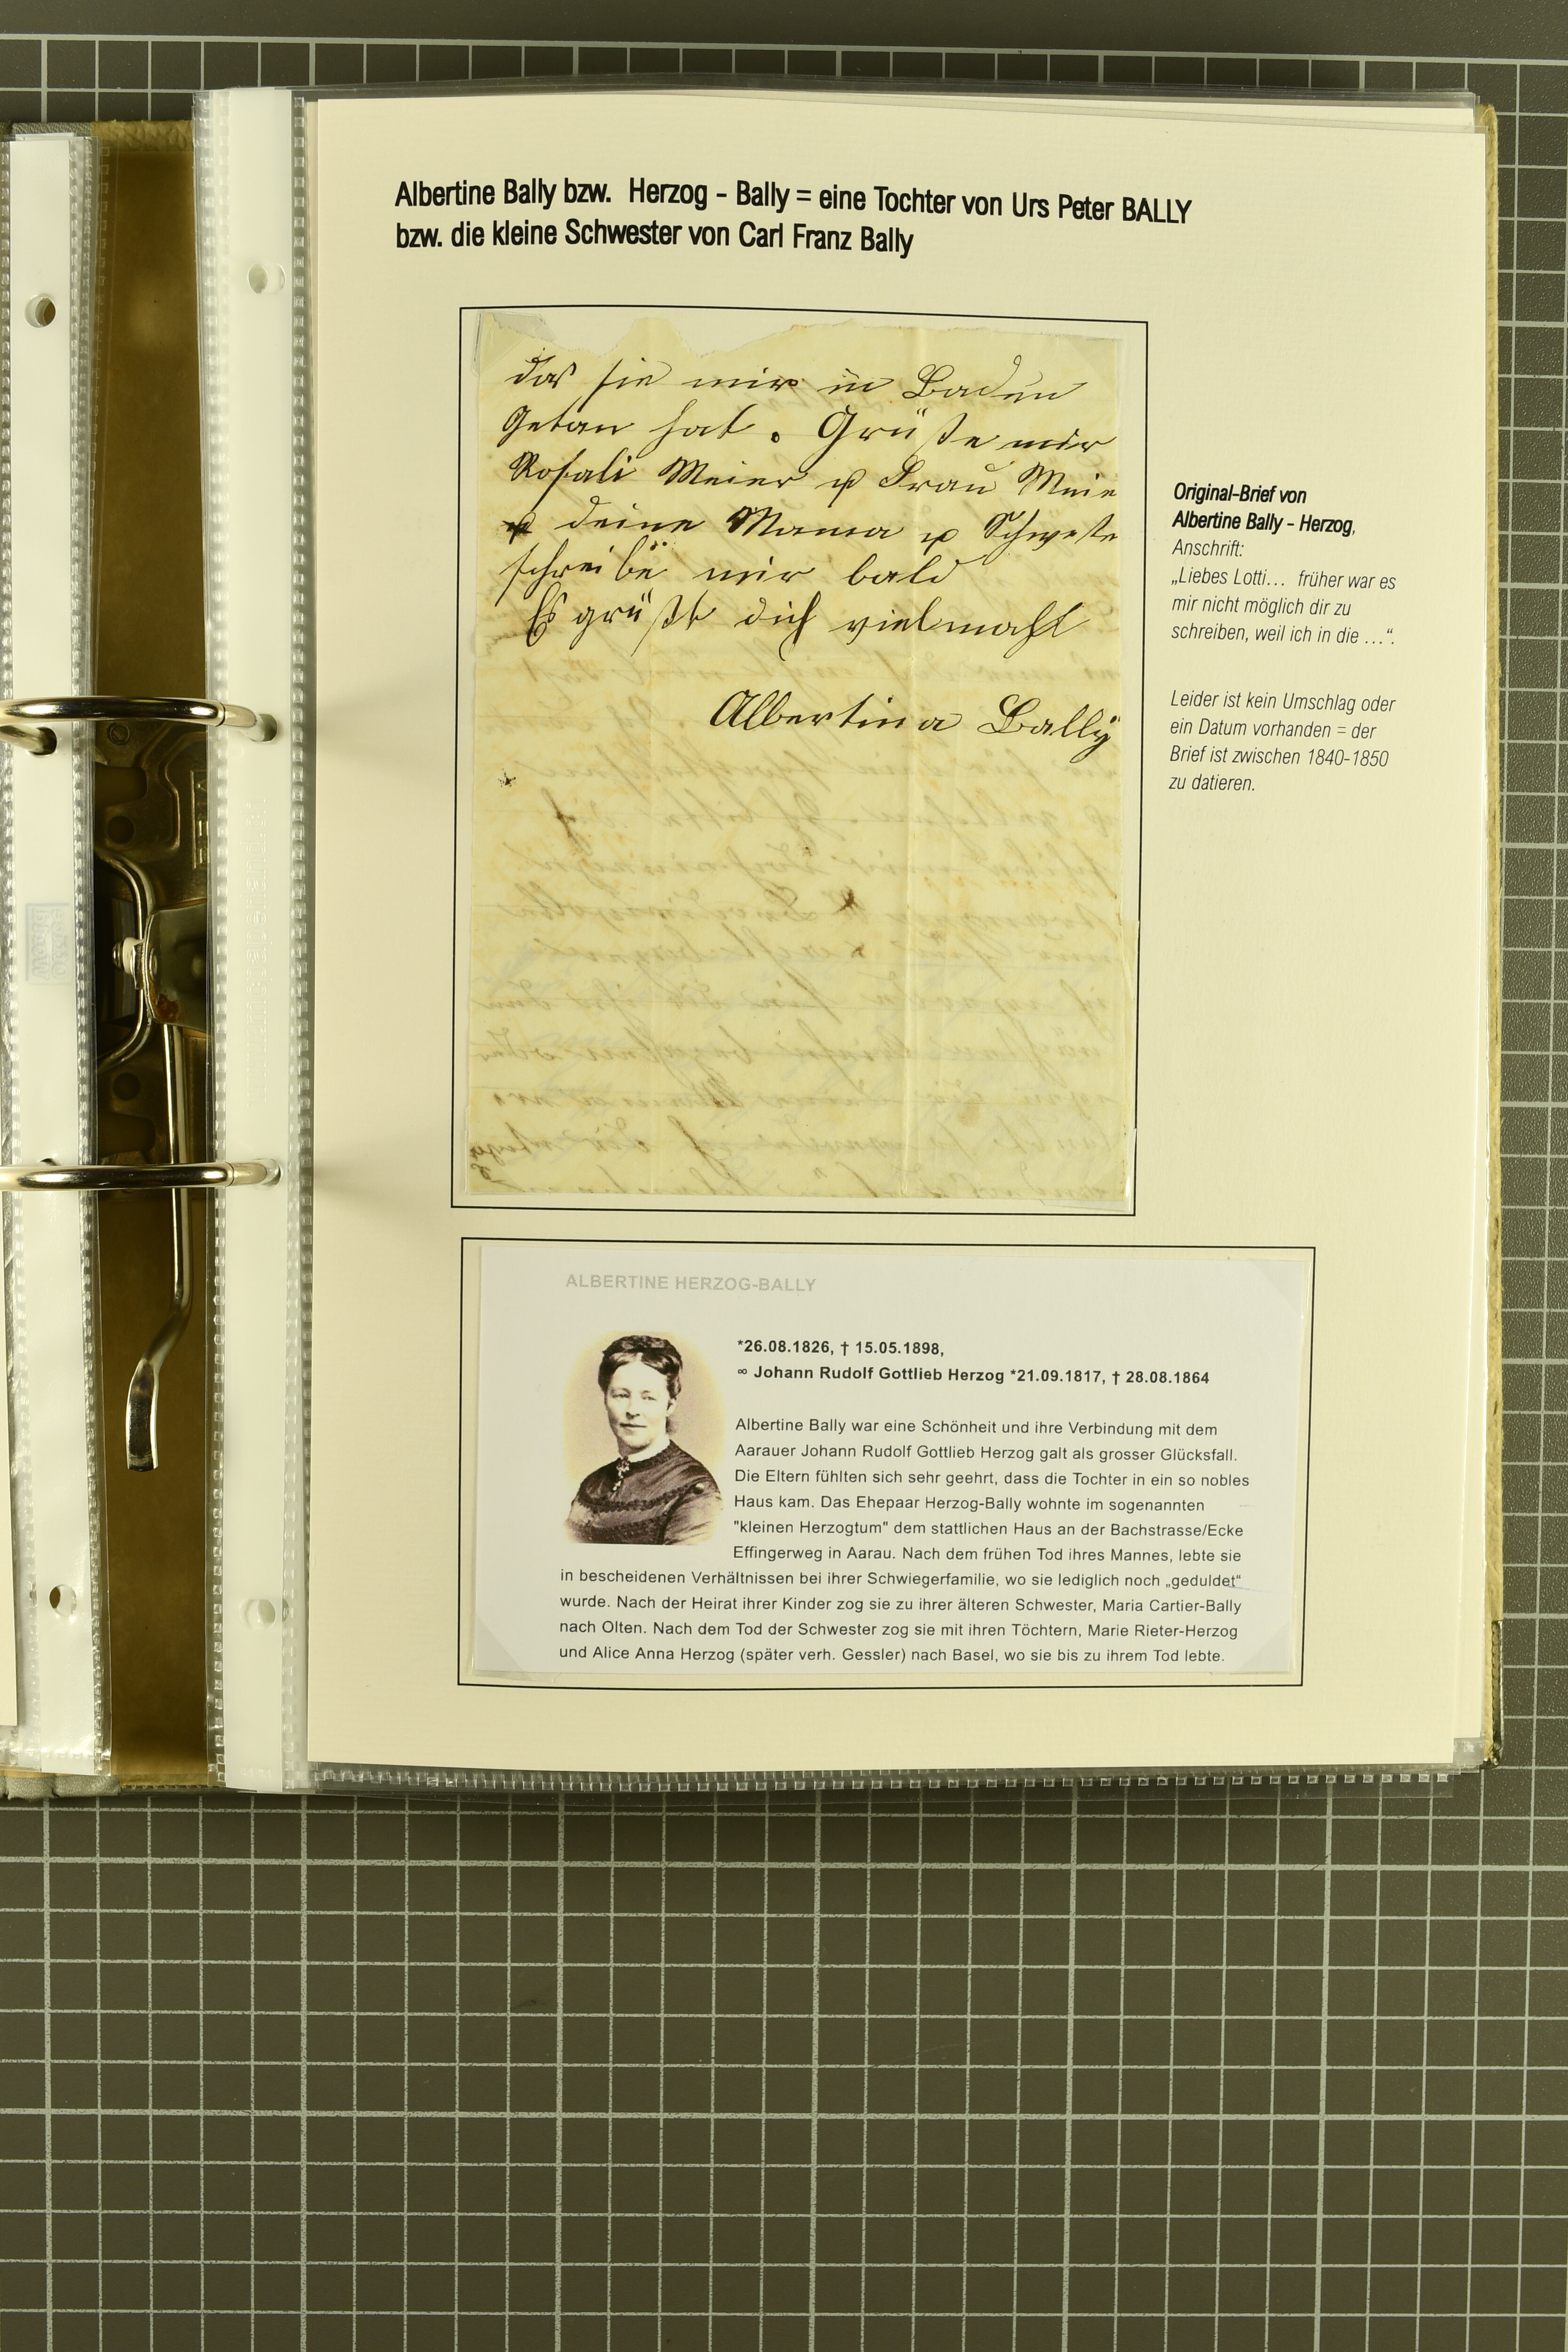 Albertine Bally bzw. Herzog - Bally = eine Tochter von Urs Peter BALLY
bzw. die kleine Schwester von Carl Franz Bally
das sie mir in Baden
Getan hat. Grüße mir
Rosali Meier u Frau Meie
u deine Mama u Schweste
schreibe mir bald
Es grüßt dich vielmahl
Albertina Bally
Original-Brief von
Albertine Bally - Herzog,
Anschrift:
„Liebes Lotti… früher war es
mir nicht möglich dir zu
schreiben, weil ich in die …“.
Leider ist kein Umschlag oder
ein Datum vorhanden = der
Brief ist zwischen 1840-1850
zu datieren.
ALBERTINE HERZOG-BALLY
*26.08.1826, † 15.05.1898,
∞ Johann Rudolf Gottlieb Herzog *21.09.1817, † 28.08.1864
Albertine Bally war eine Schönheit und ihre Verbindung mit dem
Aarauer Johann Rudolf Gottlieb Herzog galt als grosser Glücksfall.
Die Eltern fühlten sich sehr geehrt, dass die Tochter in ein so nobles
Haus kam. Das Ehepaar Herzog-Bally wohnte im sogenannten
"kleinen Herzogtum" dem stattlichen Haus an der Bachstrasse/Ecke
Effingerweg in Aarau. Nach dem frühen Tod ihres Mannes, lebte sie
in bescheidenen Verhältnissen bei ihrer Schwiegerfamilie, wo sie lediglich noch „geduldet“
wurde. Nach der Heirat ihrer Kinder zog sie zu ihrer älteren Schwester, Maria Cartier-Bally
nach Olten. Nach dem Tod der Schwester zog sie mit ihren Töchtern, Marie Rieter-Herzog
und Alice Anna Herzog (später verh. Gessler) nach Basel, wo sie bis zu ihrem Tod lebte.